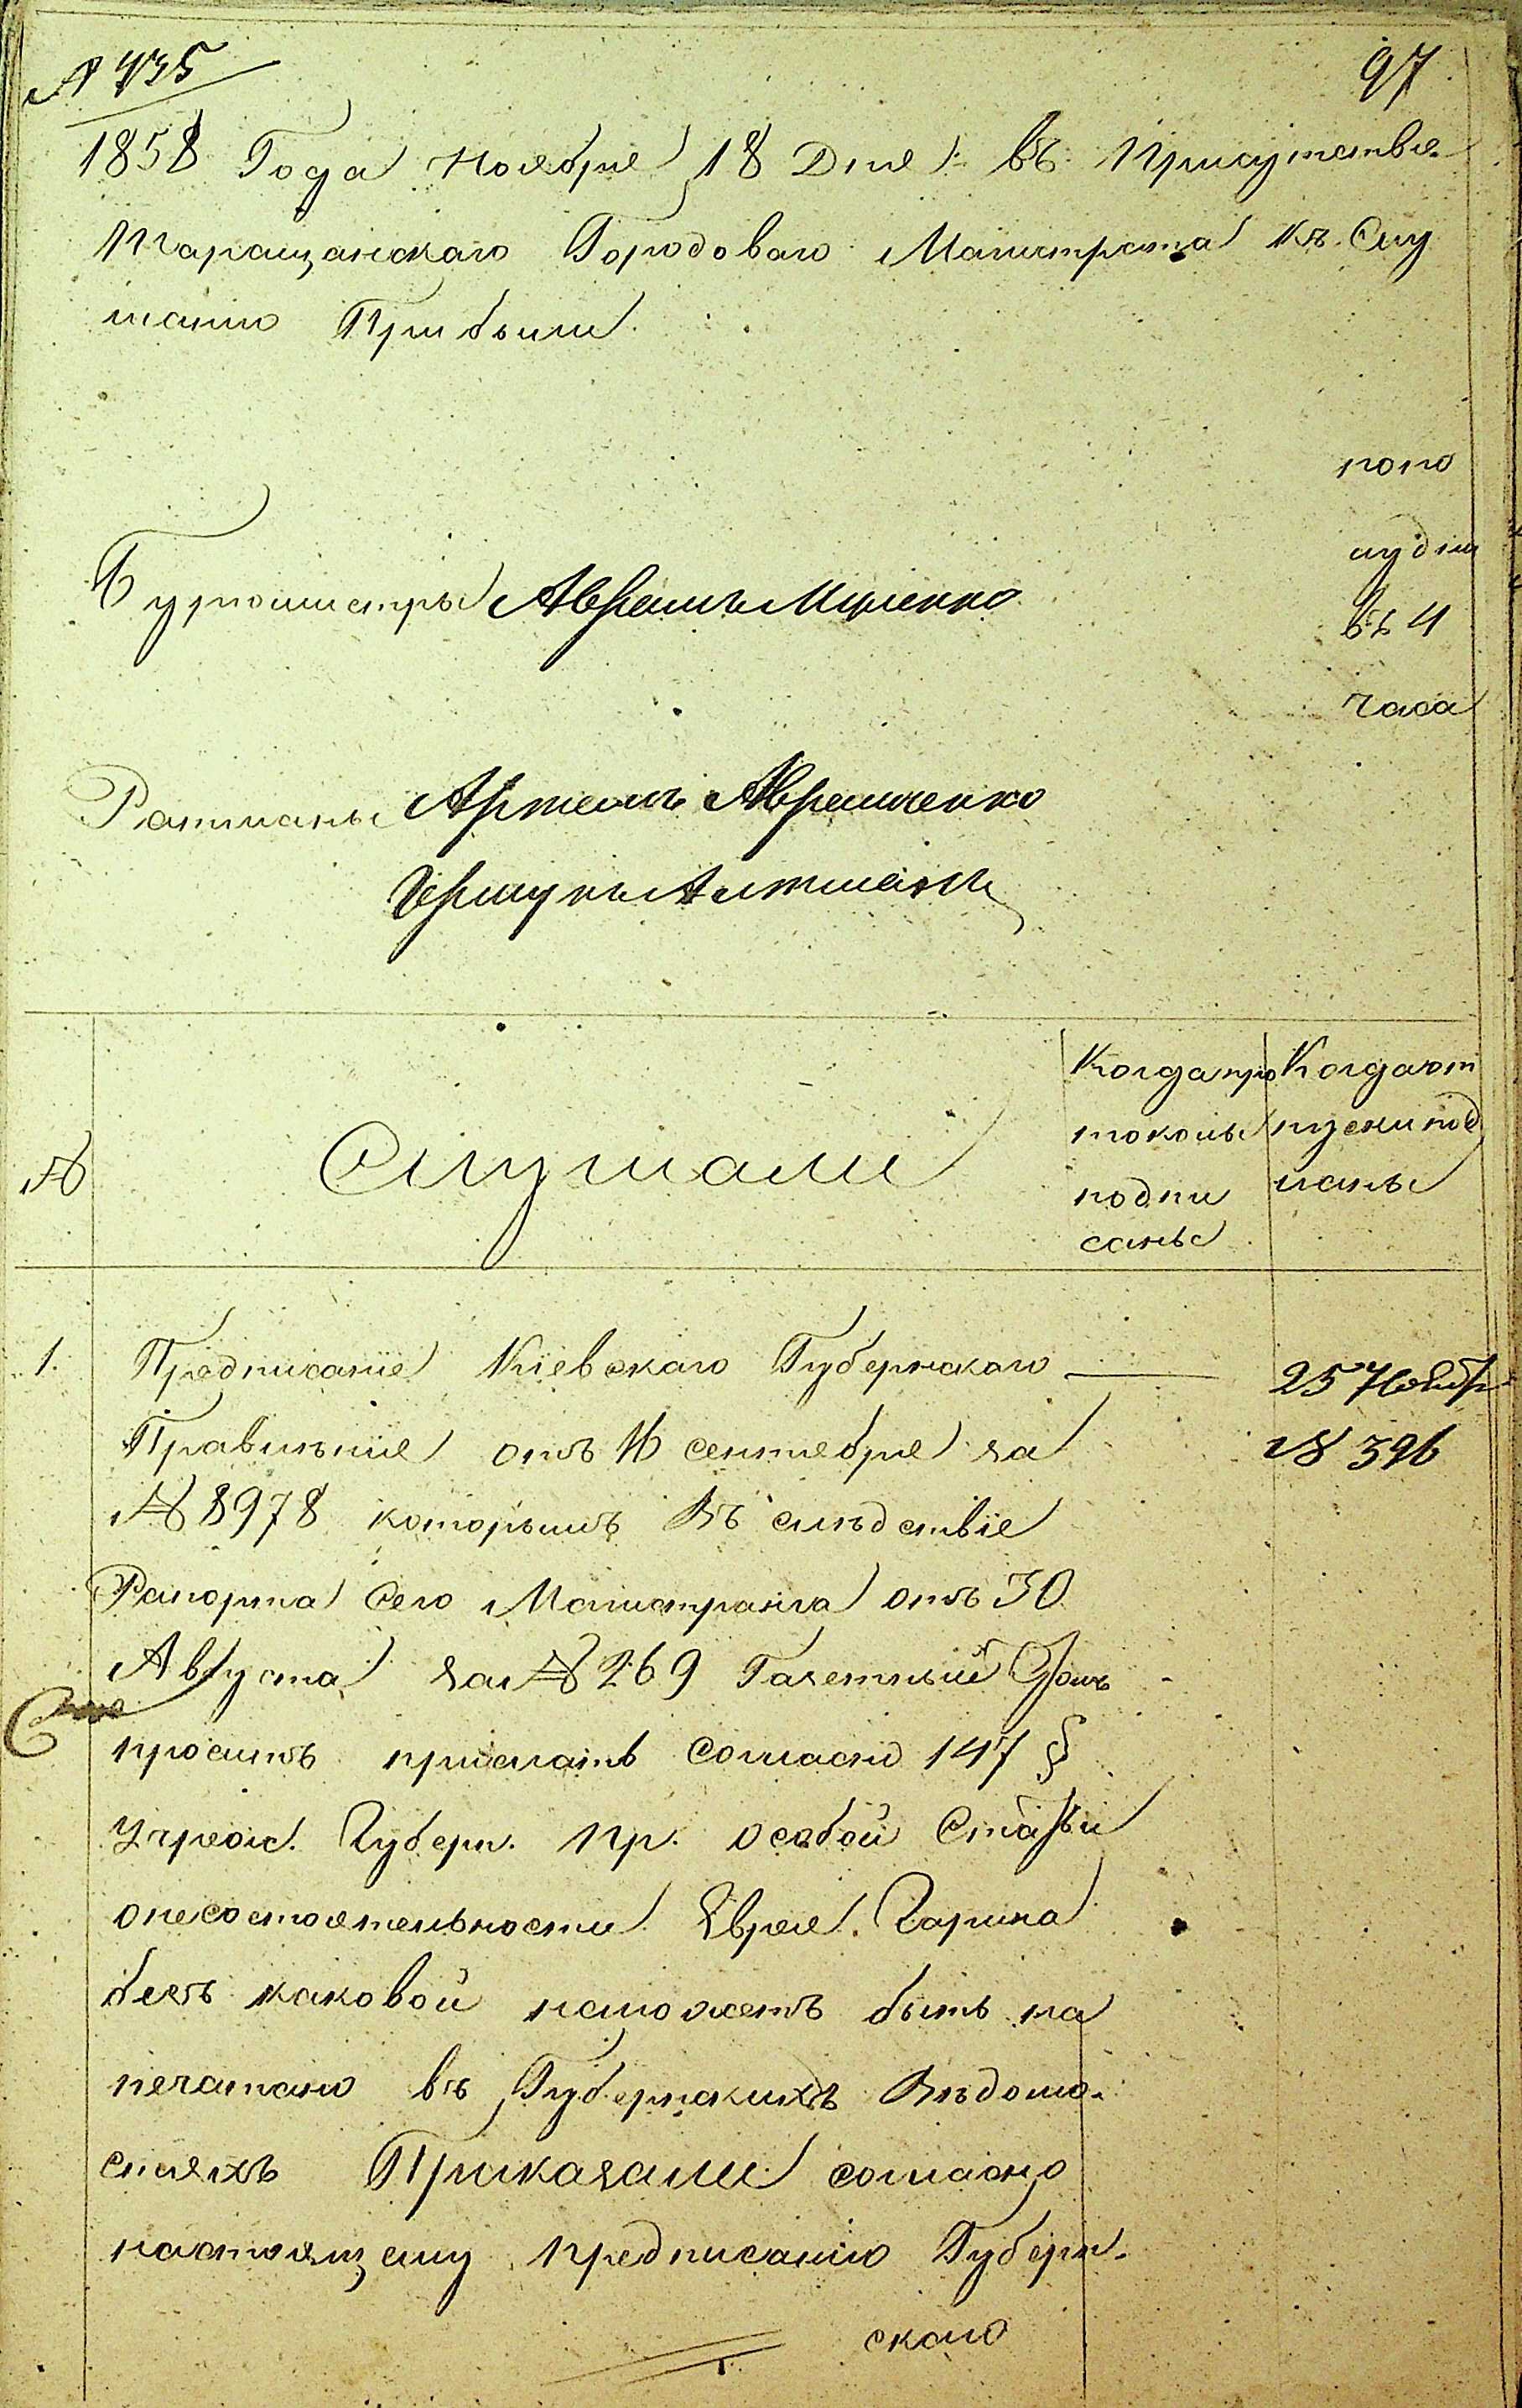 № 735
97
1858 Года Ноября 18 Дня въ Присутствие
Таращанскаго Городоваго Магистрата къ Слу
шанию Прибыли
попо
лудни
въ 4
часа
Бургомистры
Ратманы Артемъ Авраменко
№
Слушали
Когда про
токолы
подпи
саны
Когда от
пуски под
писаны
1.
Предписание Кіевскаго Губернскаго
Правленія отъ 16 сентября за
№ 8978 которымъ Въ слѣдствіе
Рапорта Сего Магистрата отъ 30
Августа за № 269 Газетный Столъ
проситъ прислать Согласно 147 §
Учрежд. Губерн. Пр. особой Статьи
о несостоятельности Еврея Гарина
безъ каковой неможетъ быть на
печатано въ Губернскихъ Вѣдомо-
стяхъ Приказали согласно
настоящему предписанію Губерн-
скаго
25 Ноября
№ 396